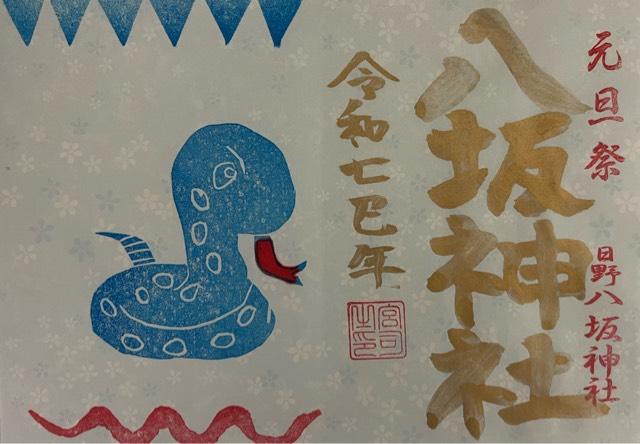 元旦祭
日野八坂神社
八坂神社
令和七巳年
宮司之印